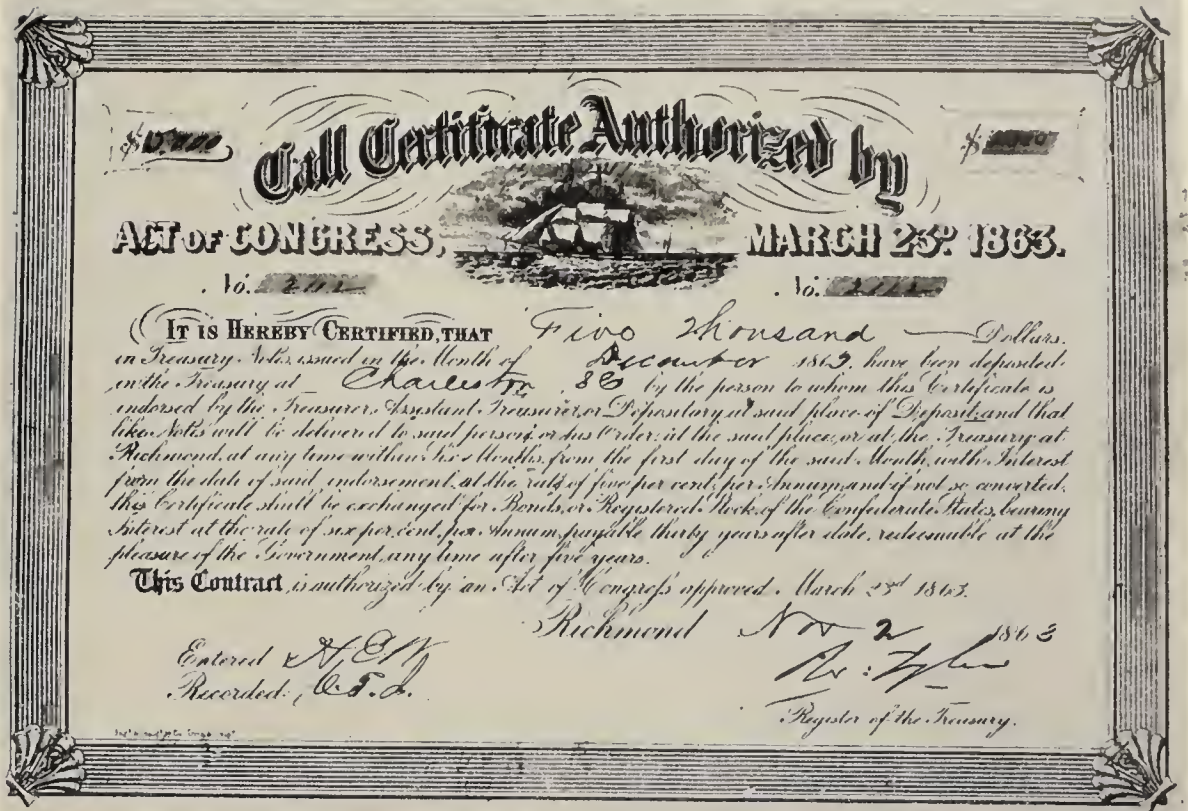 Call Certificate Authorized by
ACT OF CONGRESS, MARCH 23D. 1863.
No. No.
IT IS HEREBY CERTIFIED, THAT Five Thousand Dollars.
in Treasury Notes, issued in the Month of December 1862, have been deposited
in the Treasury at Charleston SC by the person to whom this Certificate is
indorsed by the Treasurer, Assistant Treasurer, or Depositary, at said place of Deposit; and that
like Notes will be delivered to said person, or his Order, at the said place, or at the Treasury at
Richmond, at any time within Six Months, from the first day of the said Month, with Interest
from the date of said indorsement, at the rate of five per cent, per Annum, and if not so converted,
this Certificate shall be exchanged for Bonds, or Registered Stock, of the Confederate States, bearing
Interest at the rate of six per cent, per Annum, payable thirty years after date, redeemable at the
pleasure of the Government, any time after five years.
This Contract, is authorized by an Act of Congress approved March 23rd 1863.
Richmond Nov 2 1863
Entered H.E.W
Recorded
Ro: Tyler
Register of the Treasury.